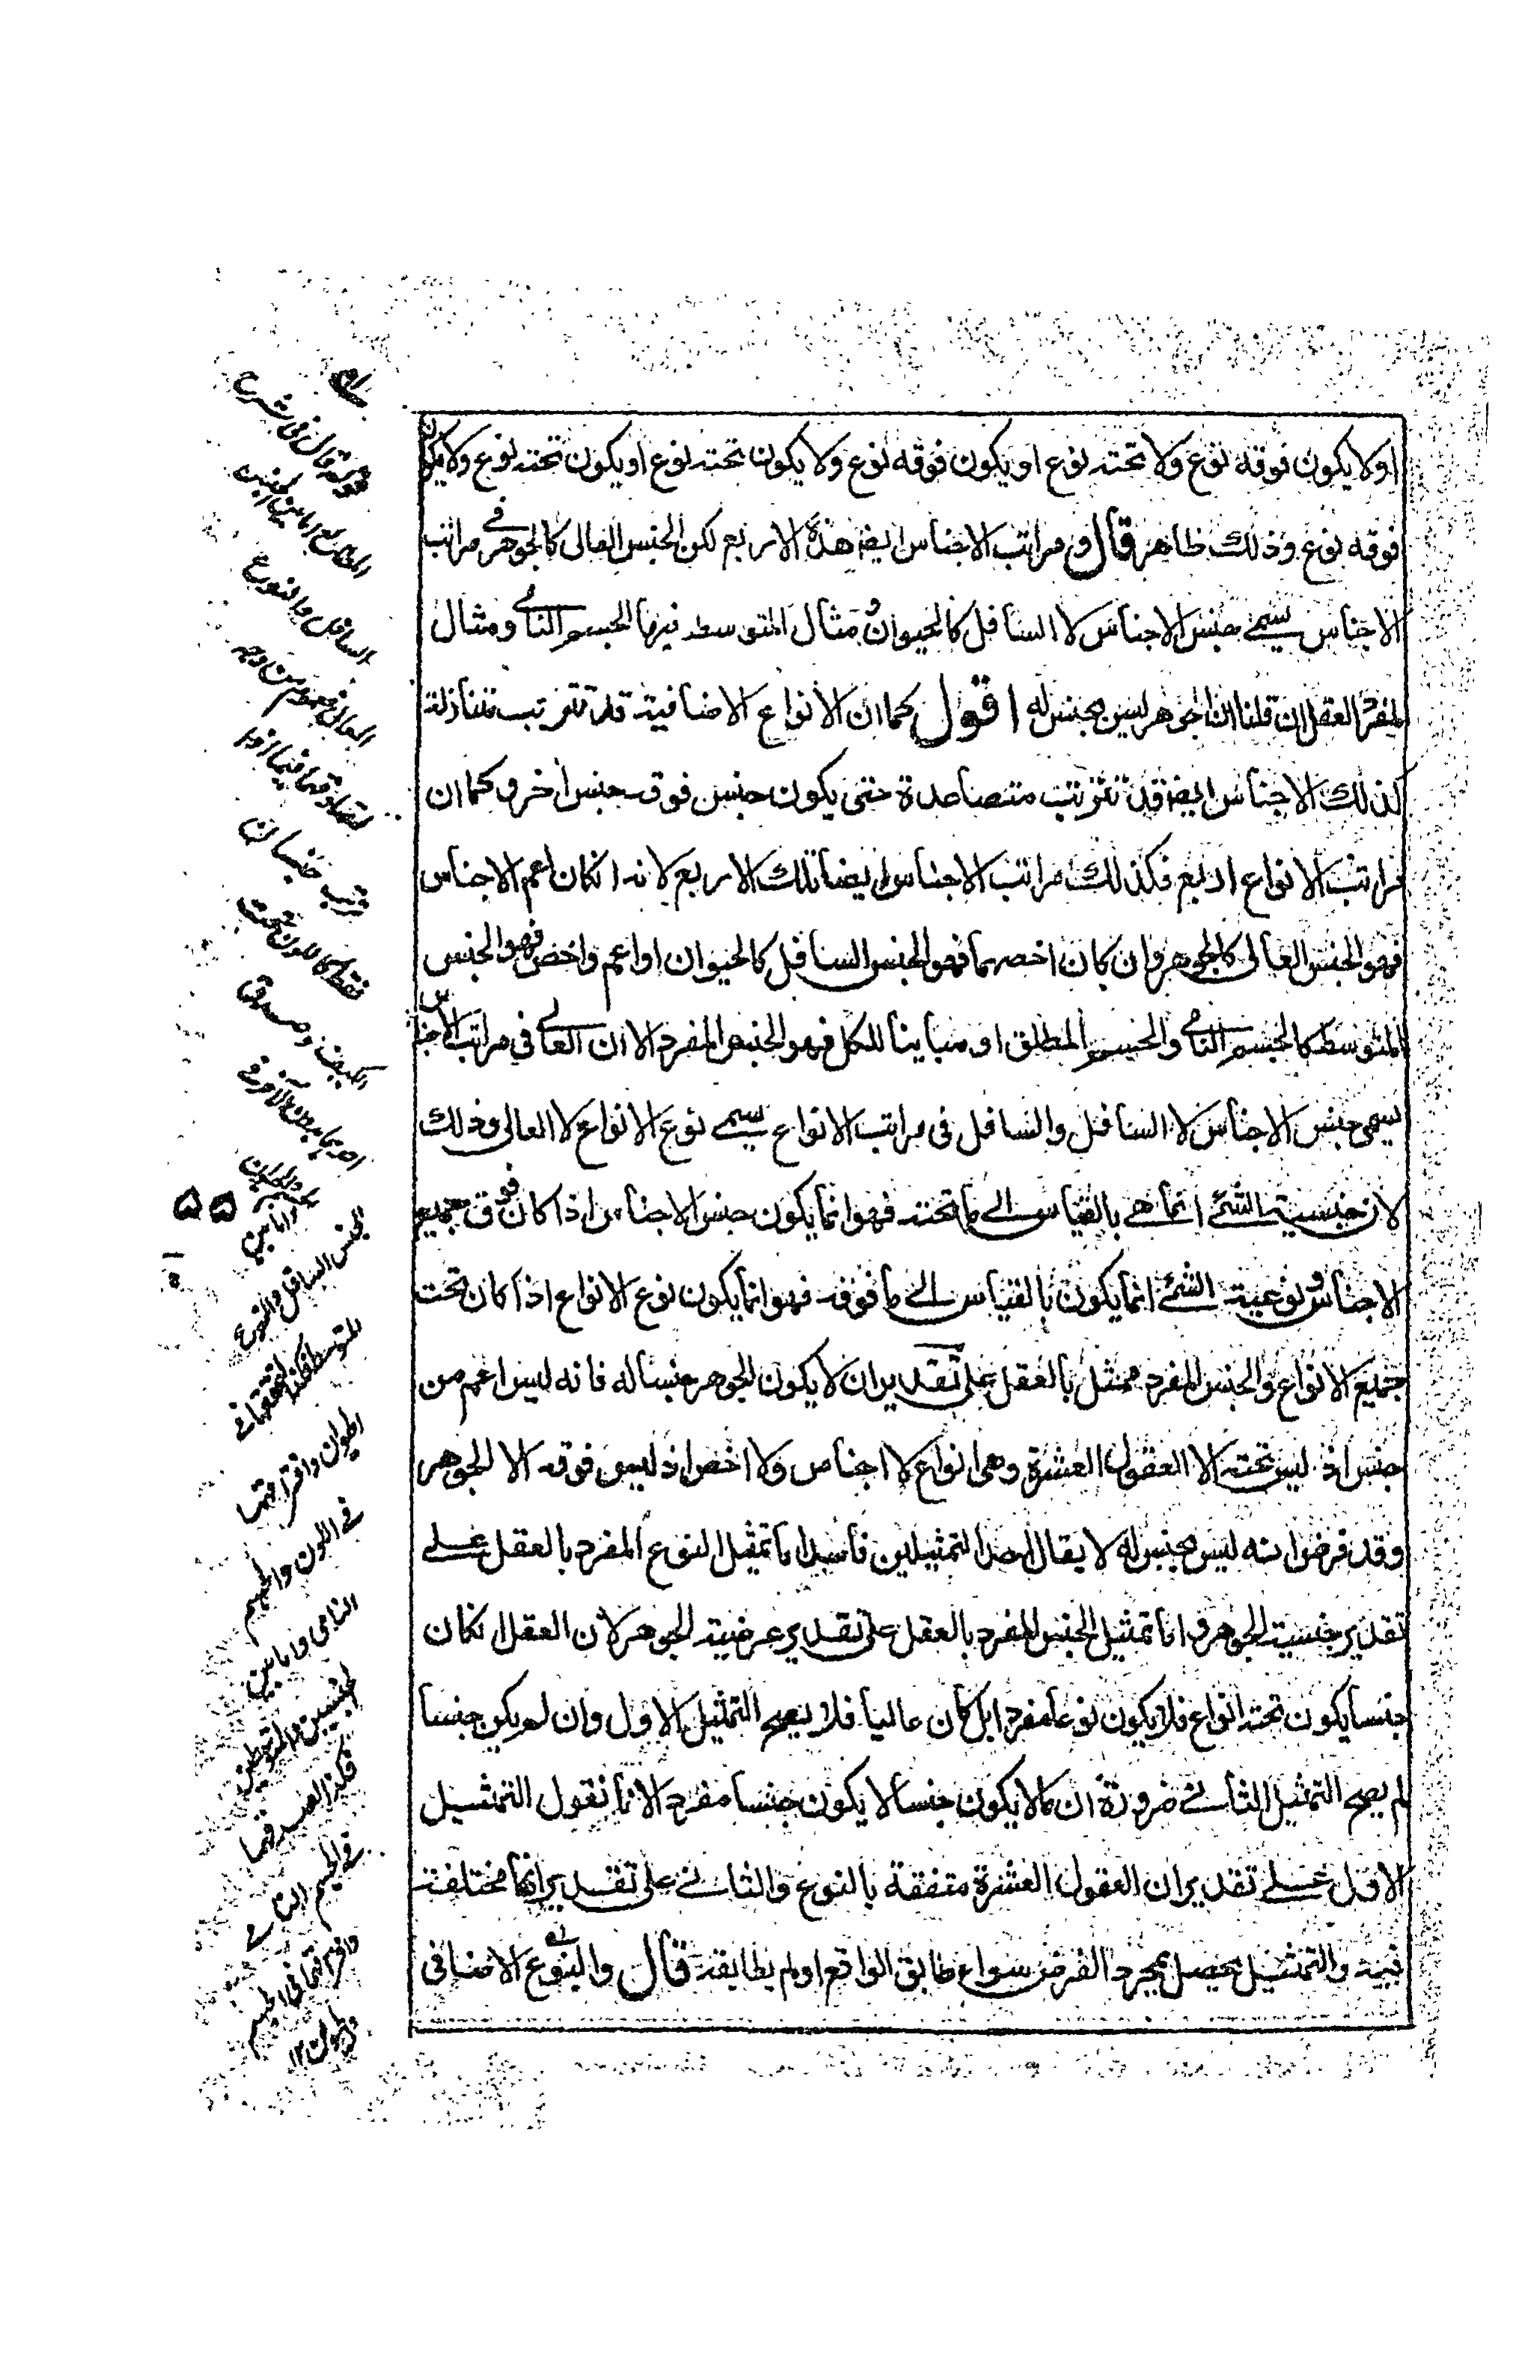 اولا يكون فوقه نوع ولا تحته نوع او يكون فوقه نوع ولا يكون تحته نوع او يكون تحته نوع ولا يكون
فوقه نوع وذلك ظاهر قال و مراتب الاجناس ايضا هذه الاربع لكن الجنس العالى كالجوهر فى مراتب
الاجناس يسمى جنس الاجناس لا السافل كالحيوان و مثال المتوسط فيها الجسم النامى ومثال
المفرد العقل ان قلنا ان الجوهر ليس بجنس له اقول كما ان الانواع الاضافية قد تترتب متنازلة
كذلك الاجناس ايضا قد تترتب متصاعدة حتى يكون جنس فوقه جنس اخر و كما ان
مراتب الانواع اربع فكذلك مراتب الاجناس ايضا تلك الاربع لانه ان كان اعم الاجناس
فهو الجنس العالى كالجوهر وان كان اخصها فهو الجنس السافل كالحيوان او اعم واخص فهو الجنس
المتوسط كالجسم النامى والجسم المطلق او مباينا للكل فهو الجنس المفرد الا ان العالى فى مراتب الاجناس
يسمى جنس الاجناس لا السافل والسافل فى مراتب الانواع يسمى نوع الانواع لا العالى وذلك
لان جنسية الشئ انما هى بالقياس الى ما تحته فهو انما يكون جنس الاجناس اذا كان فوق جميع
الاجناس و نوعية الشئ انما يكون بالقياس الى ما فوقه فهو انما يكون نوع الانواع اذا كان تحت
جميع الانواع والجنس المفرد ممثل بالعقل على تقدير ان لا يكون الجوهر جنسا له فانه ليس اعم من
جنس اذ ليس تحته الا العقول العشرة وهى انواع لا اجناس ولا اخص اذ ليس فوقه الا الجوهر
وقد فرض انه ليس بجنس له لا يقال احد التمثيلين فاسد اما تمثيل النوع المفرد بالعقل على
تقدير جنسية الجوهر و اما تمثيل الجنس المفرد بالعقل على تقدير عرضية الجوهر لان العقل ان كان
جنسا يكون تحته انواع فلا يكون نوعا مفردا بل كان عاليا فلا يصح التمثيل الاول وان لم يكن جنسا
لم يصح التمثيل الثانى ضرورة ان ما لا يكون جنسا لا يكون جنسا مفردا لانا نقول التمثيل
الاول على تقدير ان العقول العشرة متفقة بالنوع والثانى على تقدير انها مختلفة
فيه والتمثيل يحصل بمجرد الفرض سواء طابق الواقع او لم يطابقه قال والنوع الاضافى
قوله قال فى شرح
المطالع اما بين الجنس
السافل والنوع
العالى فعموم من وجه
لتصادقهما فيما اذا
ترتب جنسان
فقط كاللون تحت
الكيف وصدق
احدهما بدون الآخر فى
واما بين
الجنس السافل والنوع
المتوسط فكذلك
الحيوان وافتراقهما
فى اللون والجسم
النامى واما بين
الجنسين المتوسطين
فى الجسم النامى
وافتراقهما فى الجسم
واللون ١٢